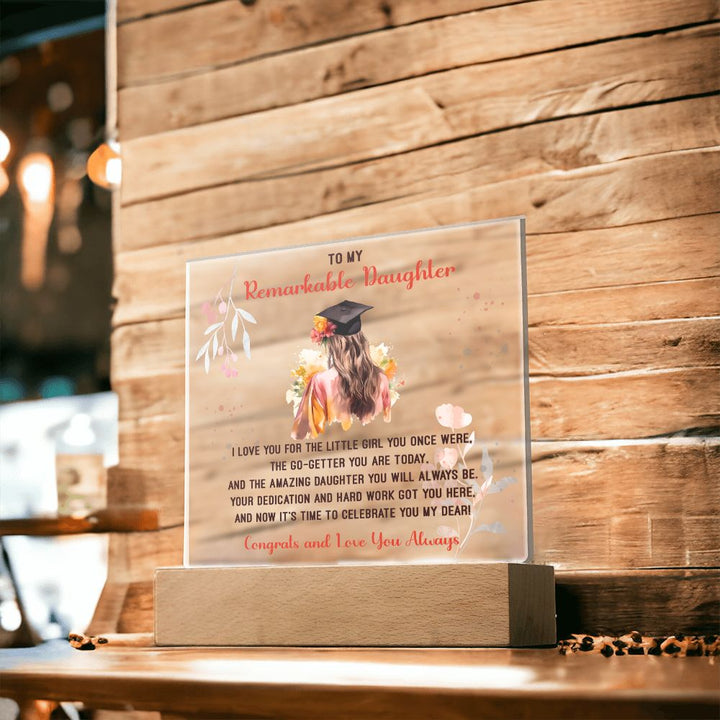 TO MY
Remarkable Daughter
I LOVE YOU FOR THE LITTLE GIRL YOU ONCE WERE,
THE GO-GETTER YOU ARE TODAY,
AND THE AMAZING DAUGHTER YOU WILL ALWAYS BE.
YOUR DEDICATION AND HARD WORK GOT YOU HERE,
AND NOW IT'S TIME TO CELEBRATE YOU MY DEAR!
Congrats and Love You Always